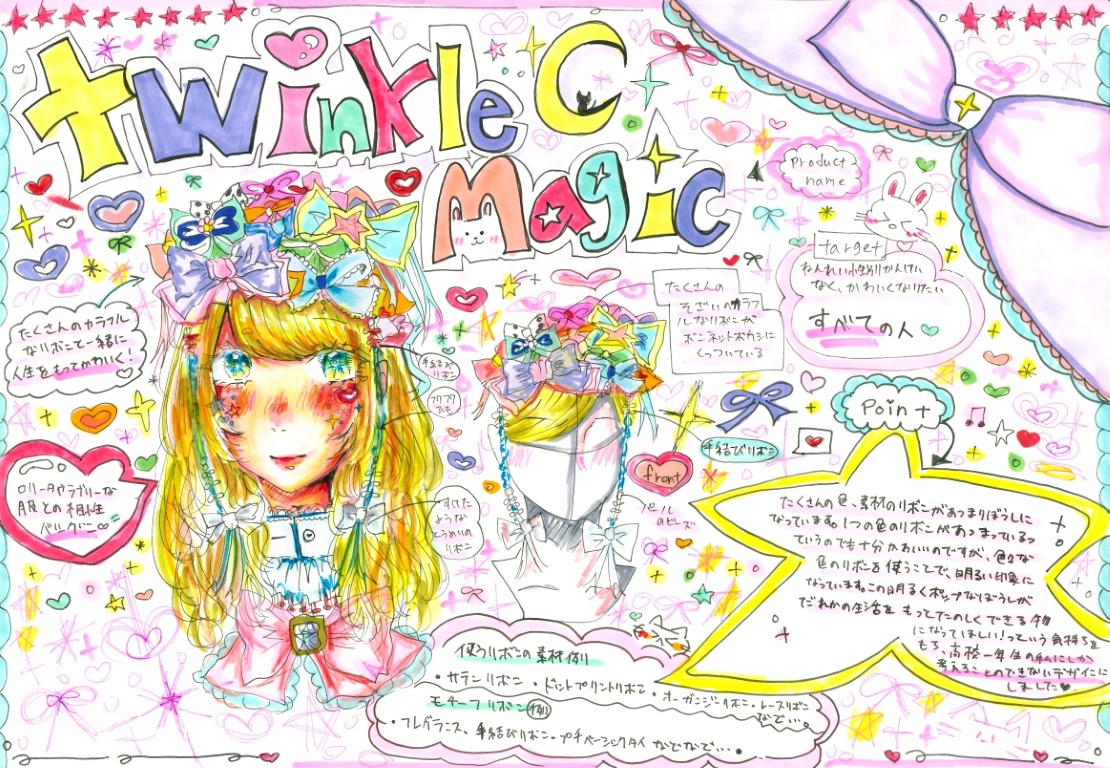 twinkle
Magic
Product
name
target
ねんれい小生別かんけい
なく、かわいくなりたい
すべての人
たくさんのカラフル
なリボンで一緒に
人生をもってかわいく!
手結び
リボン
フリフリ
ひも
たくさんの
そざいのカラフ
ルなリボンが
ボンネットボウシに
くっついている
手結びリボン
front
パール
のビーズ
すけた
ような
とうめいの
リボン
ロリータやラブリーな
服との相性
バツグン∞
Point
たくさんの色、素材のリボンがあつまりぼうしに
なっています。1つの色のリボンがあつまっているっ
ていうのでも十分かわいいのですが、色々な
色のリボンを使うことで、明るい印象に
なっています。この明るくポップなぼうしが
だれかの生活をもってたのしくできる物
になってほしい!っていう気持ちを
もち、高校一年生の私にしか
考えることのできないデザインに
しました♥
使うリボンの素材例
・サテンリボン ・ドットプリントリボン ・オーガンジーリボン・レースリボン
などで…
モチーフリボン例
・フレグランス、手結びリボン・プチベーシックタイ などなど…